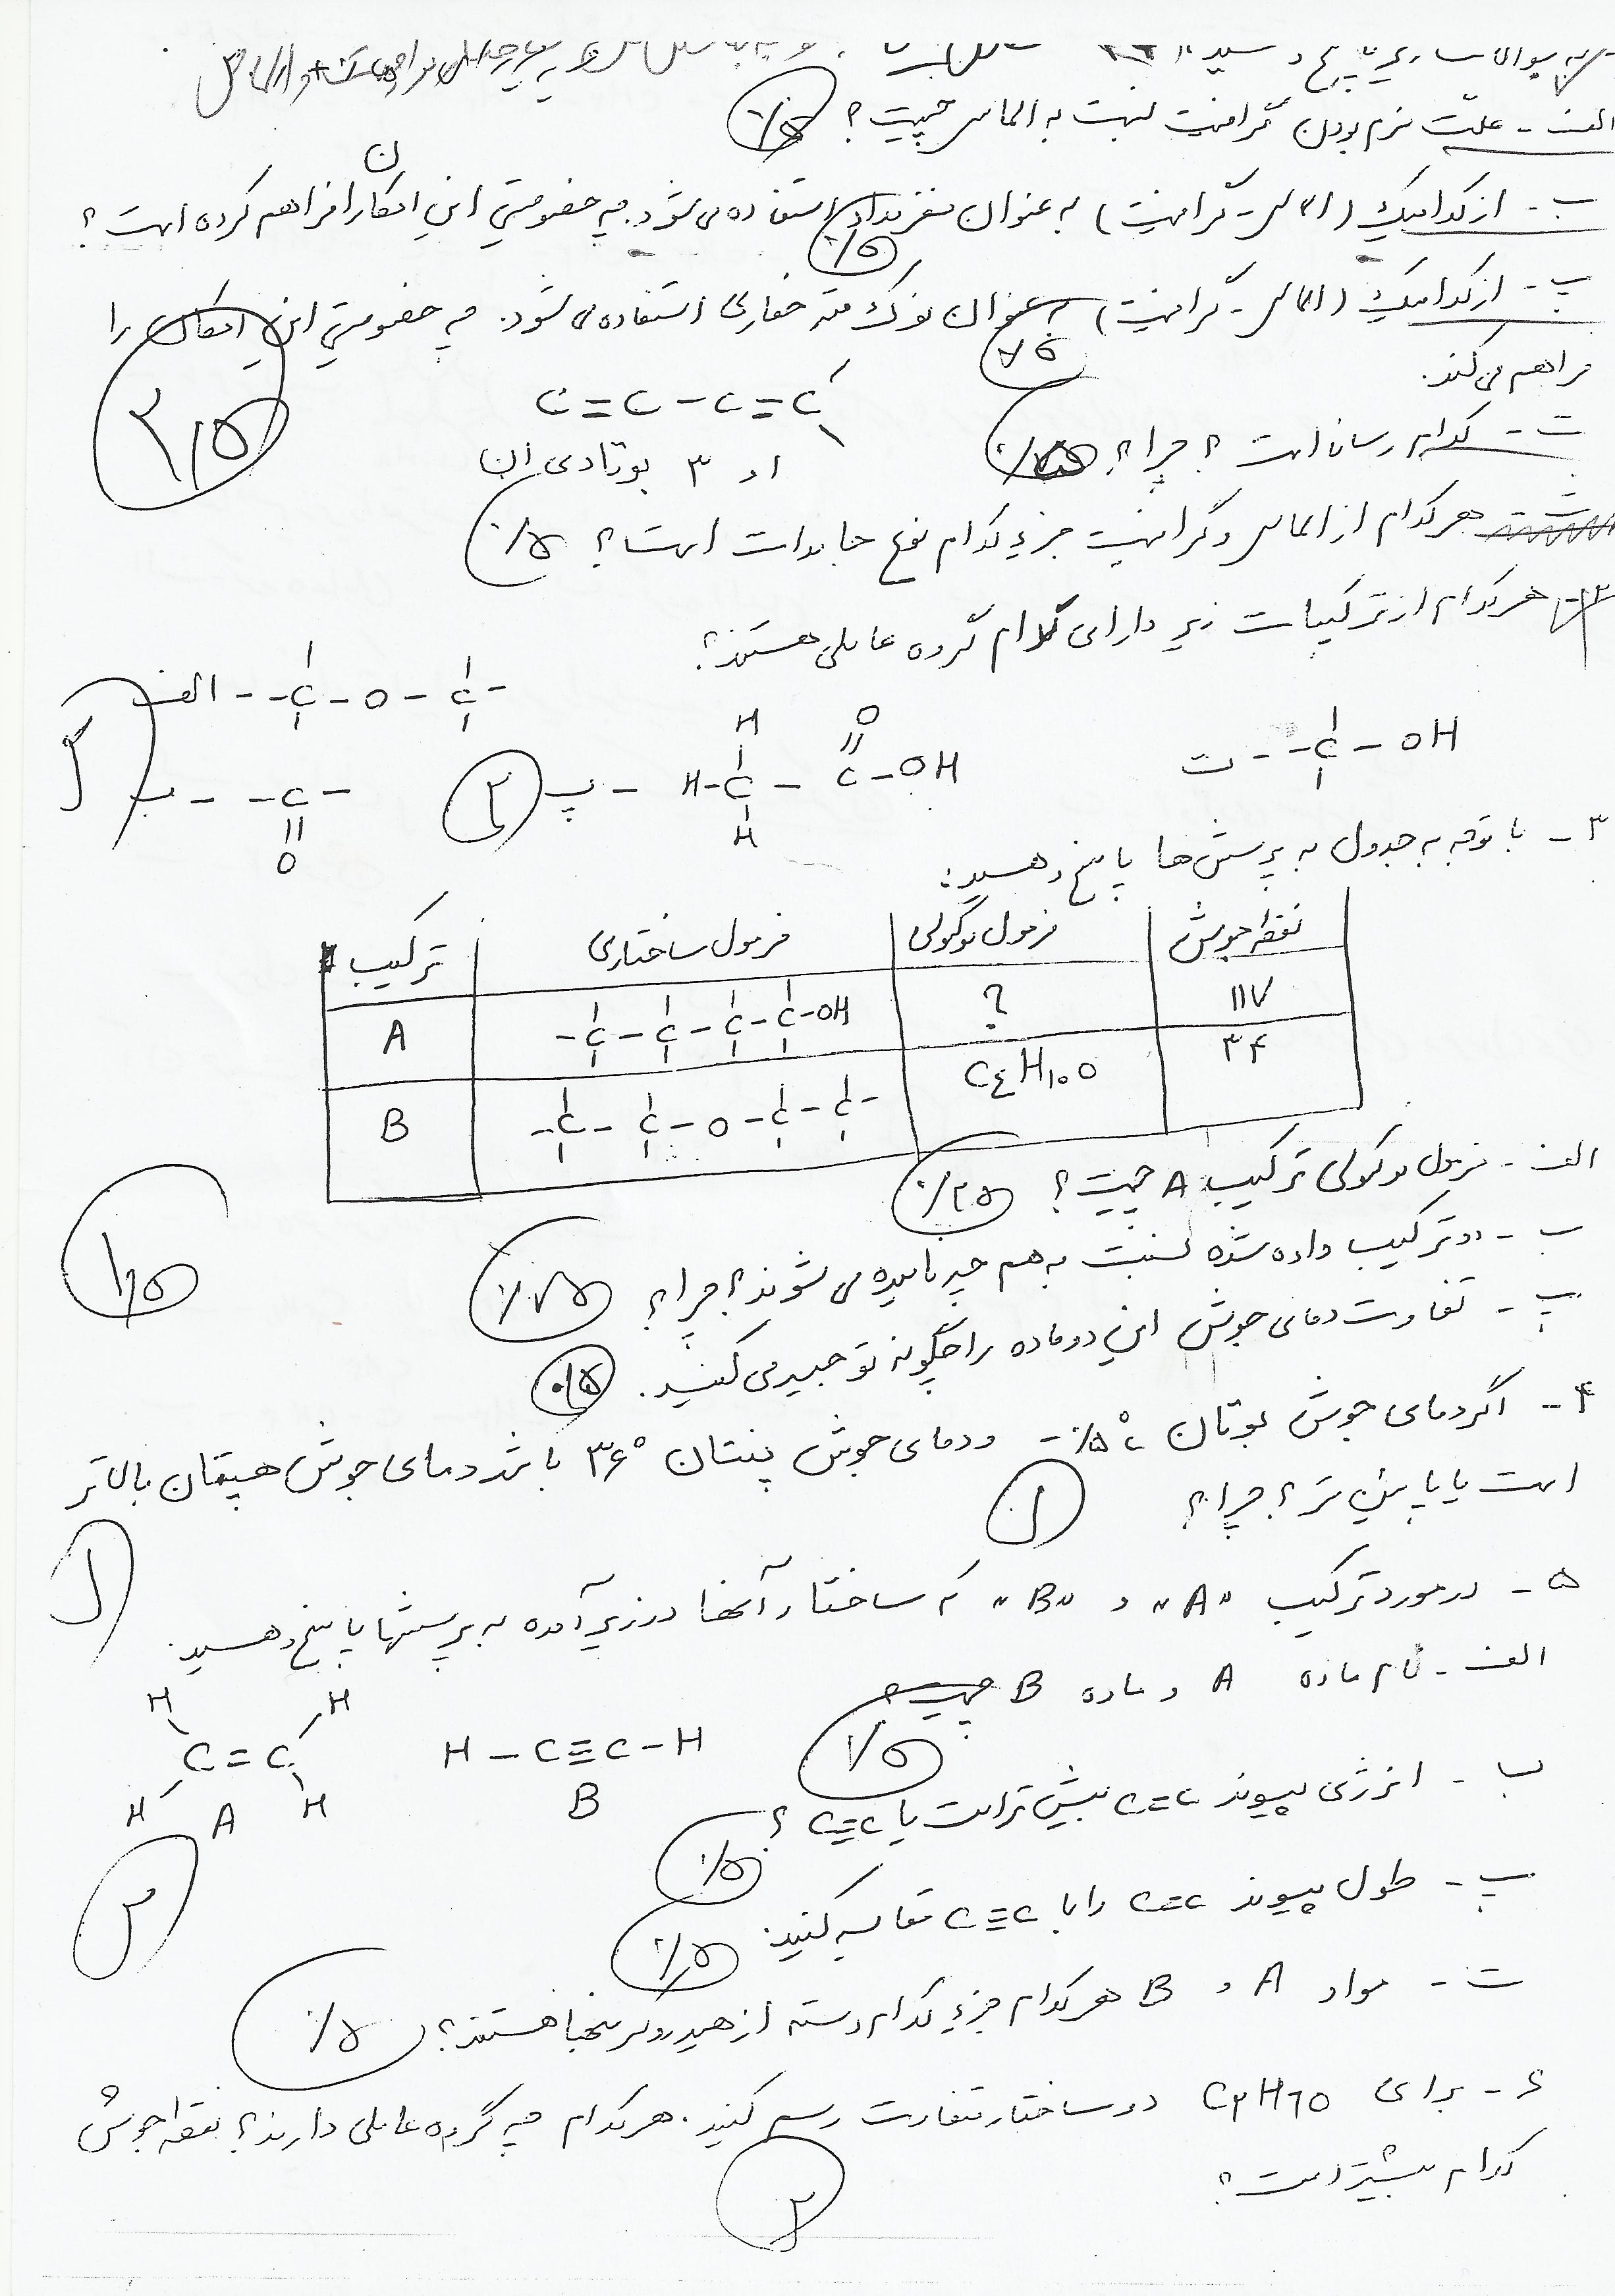 به سوالات زیر پاسخ دهید:
الف - علت نرم بودن گرافیت نسبت به الماس چیست؟ ۰/۵
ب - از کدامیک (الماس - گرافیت) به عنوان مغز مداد استفاده می‌شود. چه خصوصیتی این امکان را فراهم کرده است؟
۰/۵
پ - از کدامیک (الماس - گرافیت) به عنوان نوک مته حفاری استفاده می‌شود. چه خصوصیتی این امکان را
فراهم می‌کند. ۰/۵
C=C-C=C
ت - کدام رسانا است؟ چرا؟ ۰/۷۵
۱ و ۳ بوتادی ان
۲/۵
ث - هرکدام از الماس و گرافیت جزء کدام نوع جامدات است؟ ۰/۵
۲- هرکدام از ترکیبات زیر دارای کدام گروه عاملی هستند؟
الف - -C-O-C-
ب - -C-
O
پ - H-C-C-OH
H O
H
ت - -C-OH
۲
۳- با توجه به جدول به پرسش‌ها پاسخ دهید:
ترکیب فرمول ساختاری فرمول مولکولی نقطه جوش
A -C-C-C-C-OH ? ۱۱۷
B -C-C-O-C-C- C۴H۱۰O ۳۴
الف - فرمول مولکولی ترکیب A چیست؟ ۰/۲۵
ب - دو ترکیب داده شده نسبت به هم چه نامیده می‌شوند؟ چرا؟ ۰/۷۵
۱/۵
پ - تفاوت دمای جوش این دو ماده را چگونه توجیه می‌کنید. ۰/۵
۴- اگر دمای جوش بوتان -۰/۵°C و دمای جوش پنتان ۳۶° باشد دمای جوش هپتان بالاتر
است یا پایین تر؟ چرا؟ ۱
۵- در مورد ترکیب "A" و "B" که ساختار آنها در زیر آمده به پرسشها پاسخ دهید.
الف - نام ماده A و ماده B چیست؟ ۱/۵
H H
C=C
H H
A
H-C≡C-H
B
ب - انرژی پیوند C=C بیش تر است یا C≡C؟ ۰/۵
پ - طول پیوند C=C را با C≡C مقایسه کنید: ۰/۵
۳
ت - مواد A و B هرکدام جزء کدام دسته از هیدروکربنها هستند؟ ۰/۵
۶- برای C۲H۶O دو ساختار متفاوت رسم کنید. هرکدام چه گروه عاملی دارند؟ نقطه جوش
کدام بیشتر است؟
۲